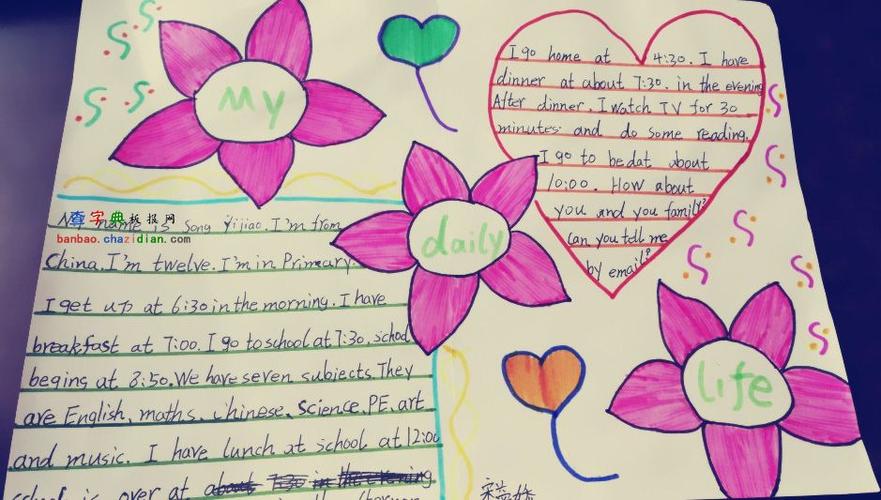 My
daily
life
name is Song Yijiao. I'm from
查字典板报网
banbao.chazidian.com
China. I'm twelve. I'm in Primary
I get up at 6:30 in the morning. I have
breakfast at 7:00. I go to school at 7:30. school
begins at 8:50. We have seven subjects. They
are English, maths, Chinese, science, PE, art
and music. I have lunch at school at 12:00
is over at about 7:30 in the evening
I go home at 4:30. I have
dinner at about 7:30. in the evening
After dinner. I watch TV for 30
minutes and do some reading.
I go to bedat about
10:00. How about
you and you family?
Can you tell me
by email?